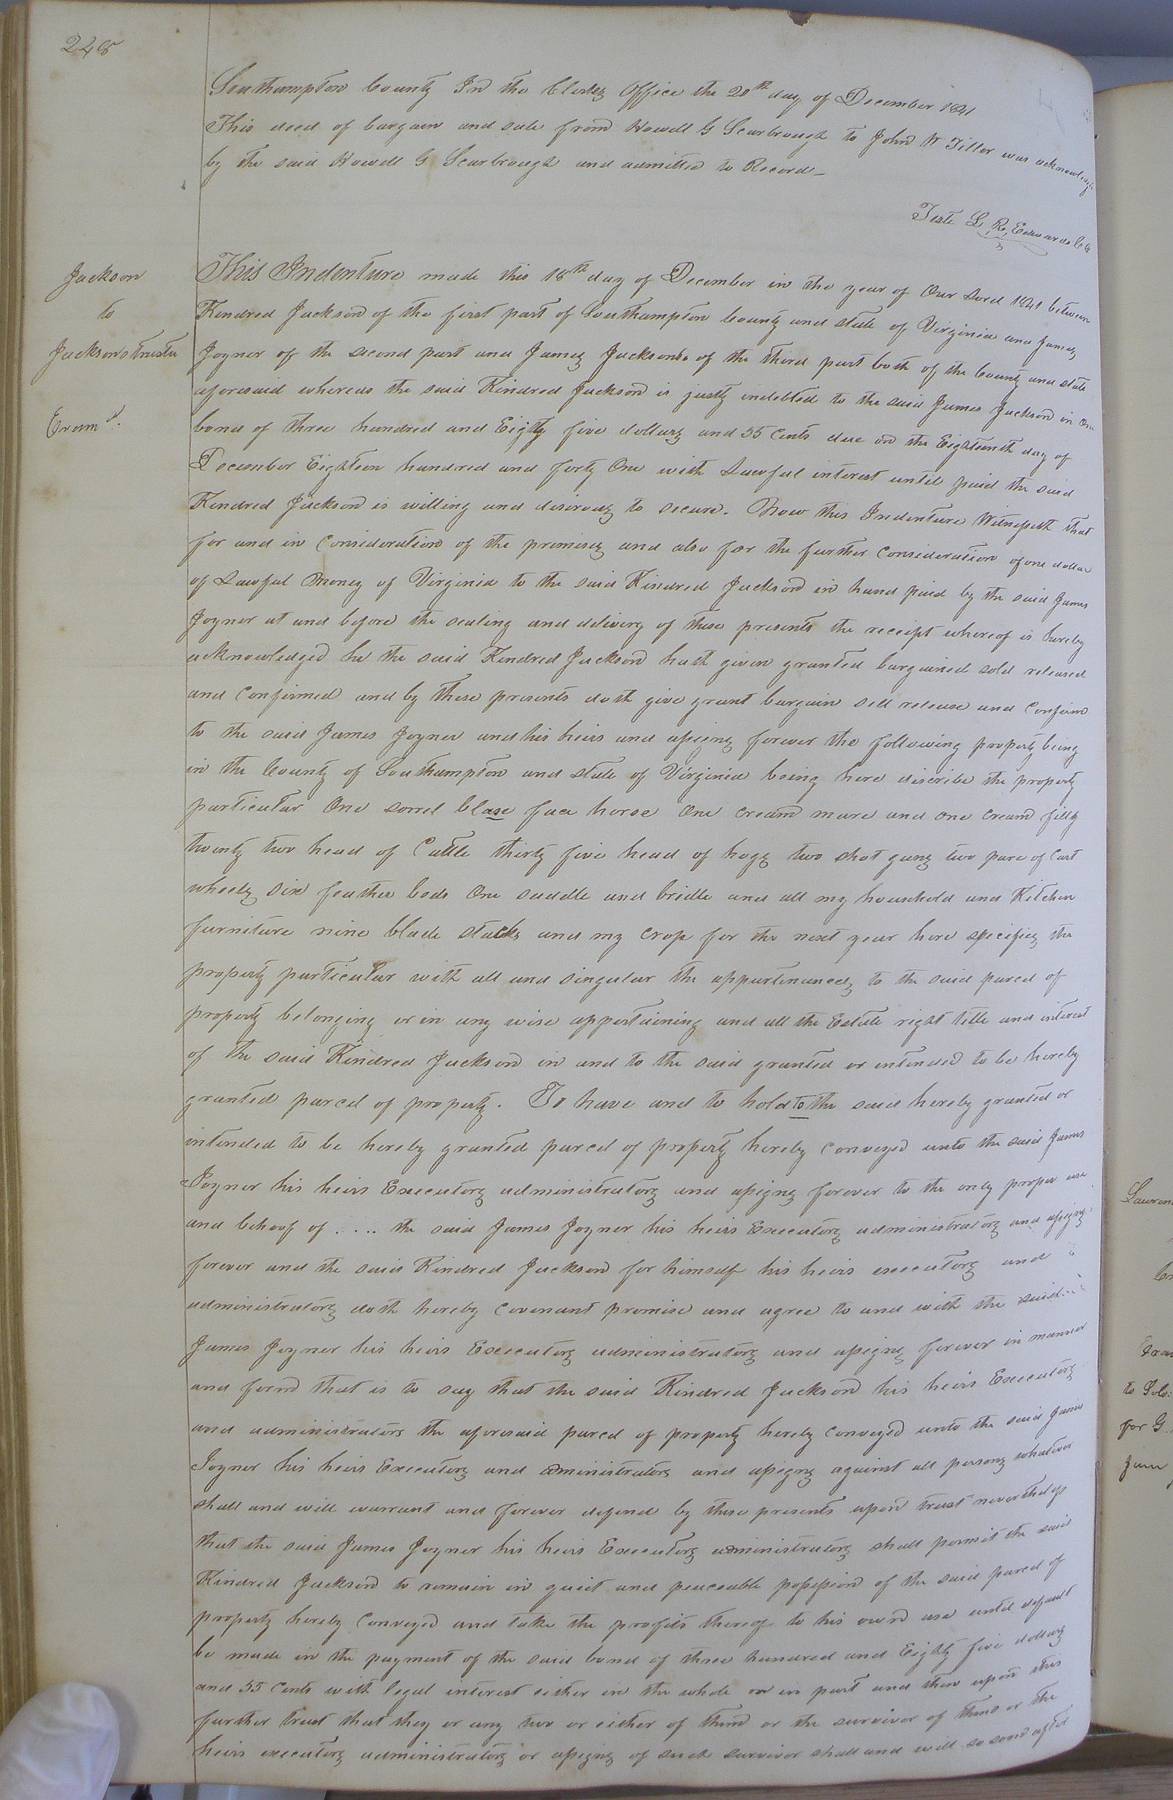 248
Southampton County In the Clerks Office the 20th day of December 1841
This deed of bargain and sale from Howell G Scarbrough to John W Tiller was acknowledged
by the said Howell G Scarbrough and admitted to Record—
Teste L. R. Edwards CC
Jackson
to
Jacksons trustee
Examd.
This Indenture made this 18th day of December in the year of Our Lord 1841 between
Kindred Jackson of the first part of Southampton County and state of Virginia and James
Joyner of the second part and James Jackson of the third part both of the County and state
aforesaid whereas the said Kindred Jackson is justly indebted to the said James Jackson in One
bond of three hundred and Eighty five dollars and 55 Cents due on the Eighteenth day of
December Eighteen hundred and forty One with Lawful interest until paid the said
Kindred Jackson is willing and disirous to secure. Now this Indenture Witnesseth that
for and in Consideration of the premises and also for the further Consideration of one dollar
of Lawful money of Virginia to the said Kindred Jackson in hand paid by the said James
Joyner at and before the sealing and delivery of these presents the receipt whereof is hereby
acknowledged he the said Kindred Jackson hath given granted bargained sold released
and Confirmed and by these presents doth give grant bargain sell release and Confirm
to the said James Joyner and his heirs and assigns forever the following property being
in the County of Southampton and state of Virginia being here discribe the property
particular One sorrel blase face horse One cream mare and one cream filly
twenty two head of Cattle thirty five head of hogs two shot guns two pare of Cart
wheels six feather beds One saddle and bridle and all my household and Kitchen
furniture nine blade stacks and my crop for the next year here specifies the
property particular with all and singular the appurtinances to the said parcel of
property belonging or in any wise appertaining and all the Estate right title and interest
of the said Kindred Jackson in and to the said granted or intended to be hereby
granted parcel of property. To have and to hold to the said hereby granted or
intended to be hereby granted parcel of property hereby Conveyed unto the said James
Joyner his heirs Executors administrators and assigns forever to the only proper use
and behoof of .... the said James Joyner his heirs Executors administrators and assigns
forever and the said Kindred Jackson for himself his heirs executors and
administrators doth hereby Covenant promise and agree to and with the said
James Joyner his heirs Executors administrators and assigns forever in manner
and form that is to say that the said Kindred Jackson his heirs Executors
and administrators the aforesaid parcel of property hereby Conveyed unto the said James
Joyner his heirs Executors and administrators and assigns against all persons whatever
shall and will warrant and forever defend by these presents upon trust nevertheless
that the said James Joyner his heirs Executors administrators shall permit the said
Kindred Jackson to remain in quiet and peaceable possession of the said parcel of
property hereby Conveyed and take the profits thereof to his own use until default
be made in the payment of the said bond of three hundred and Eighty five dollars
and 55 Cents with legal interest either in the whole or in part and then upon this
further trust that they or any two or either of them or the survivor of them or the
heirs executors administrators or assigns of such survivor shall and will so soon after
to
for G